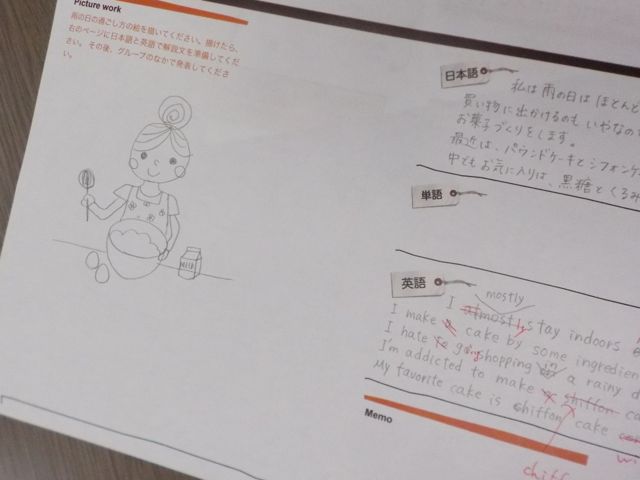 Picture work
雨の日の過ごし方の絵を描いてください。描けたら、
右のページに日本語と英語で解説文を準備してくだ
さい。その後、グループのなかで発表してくださ
い。
MILK
日本語
私は雨の日はほとんど
買い物に出かけるのもいやなので
お菓子づくりをします。
最近は、パウンドケーキとシフォンケ
中でもお気に入りは、黒糖とくるみ
単語
英語
mostly
I almost stay indoors
I make a cake by some ingredien
I hate to going shopping in a rainy d
I'm addicted to make a chiffon ca
My favorite cake is chiffon cake
Memo
chiff